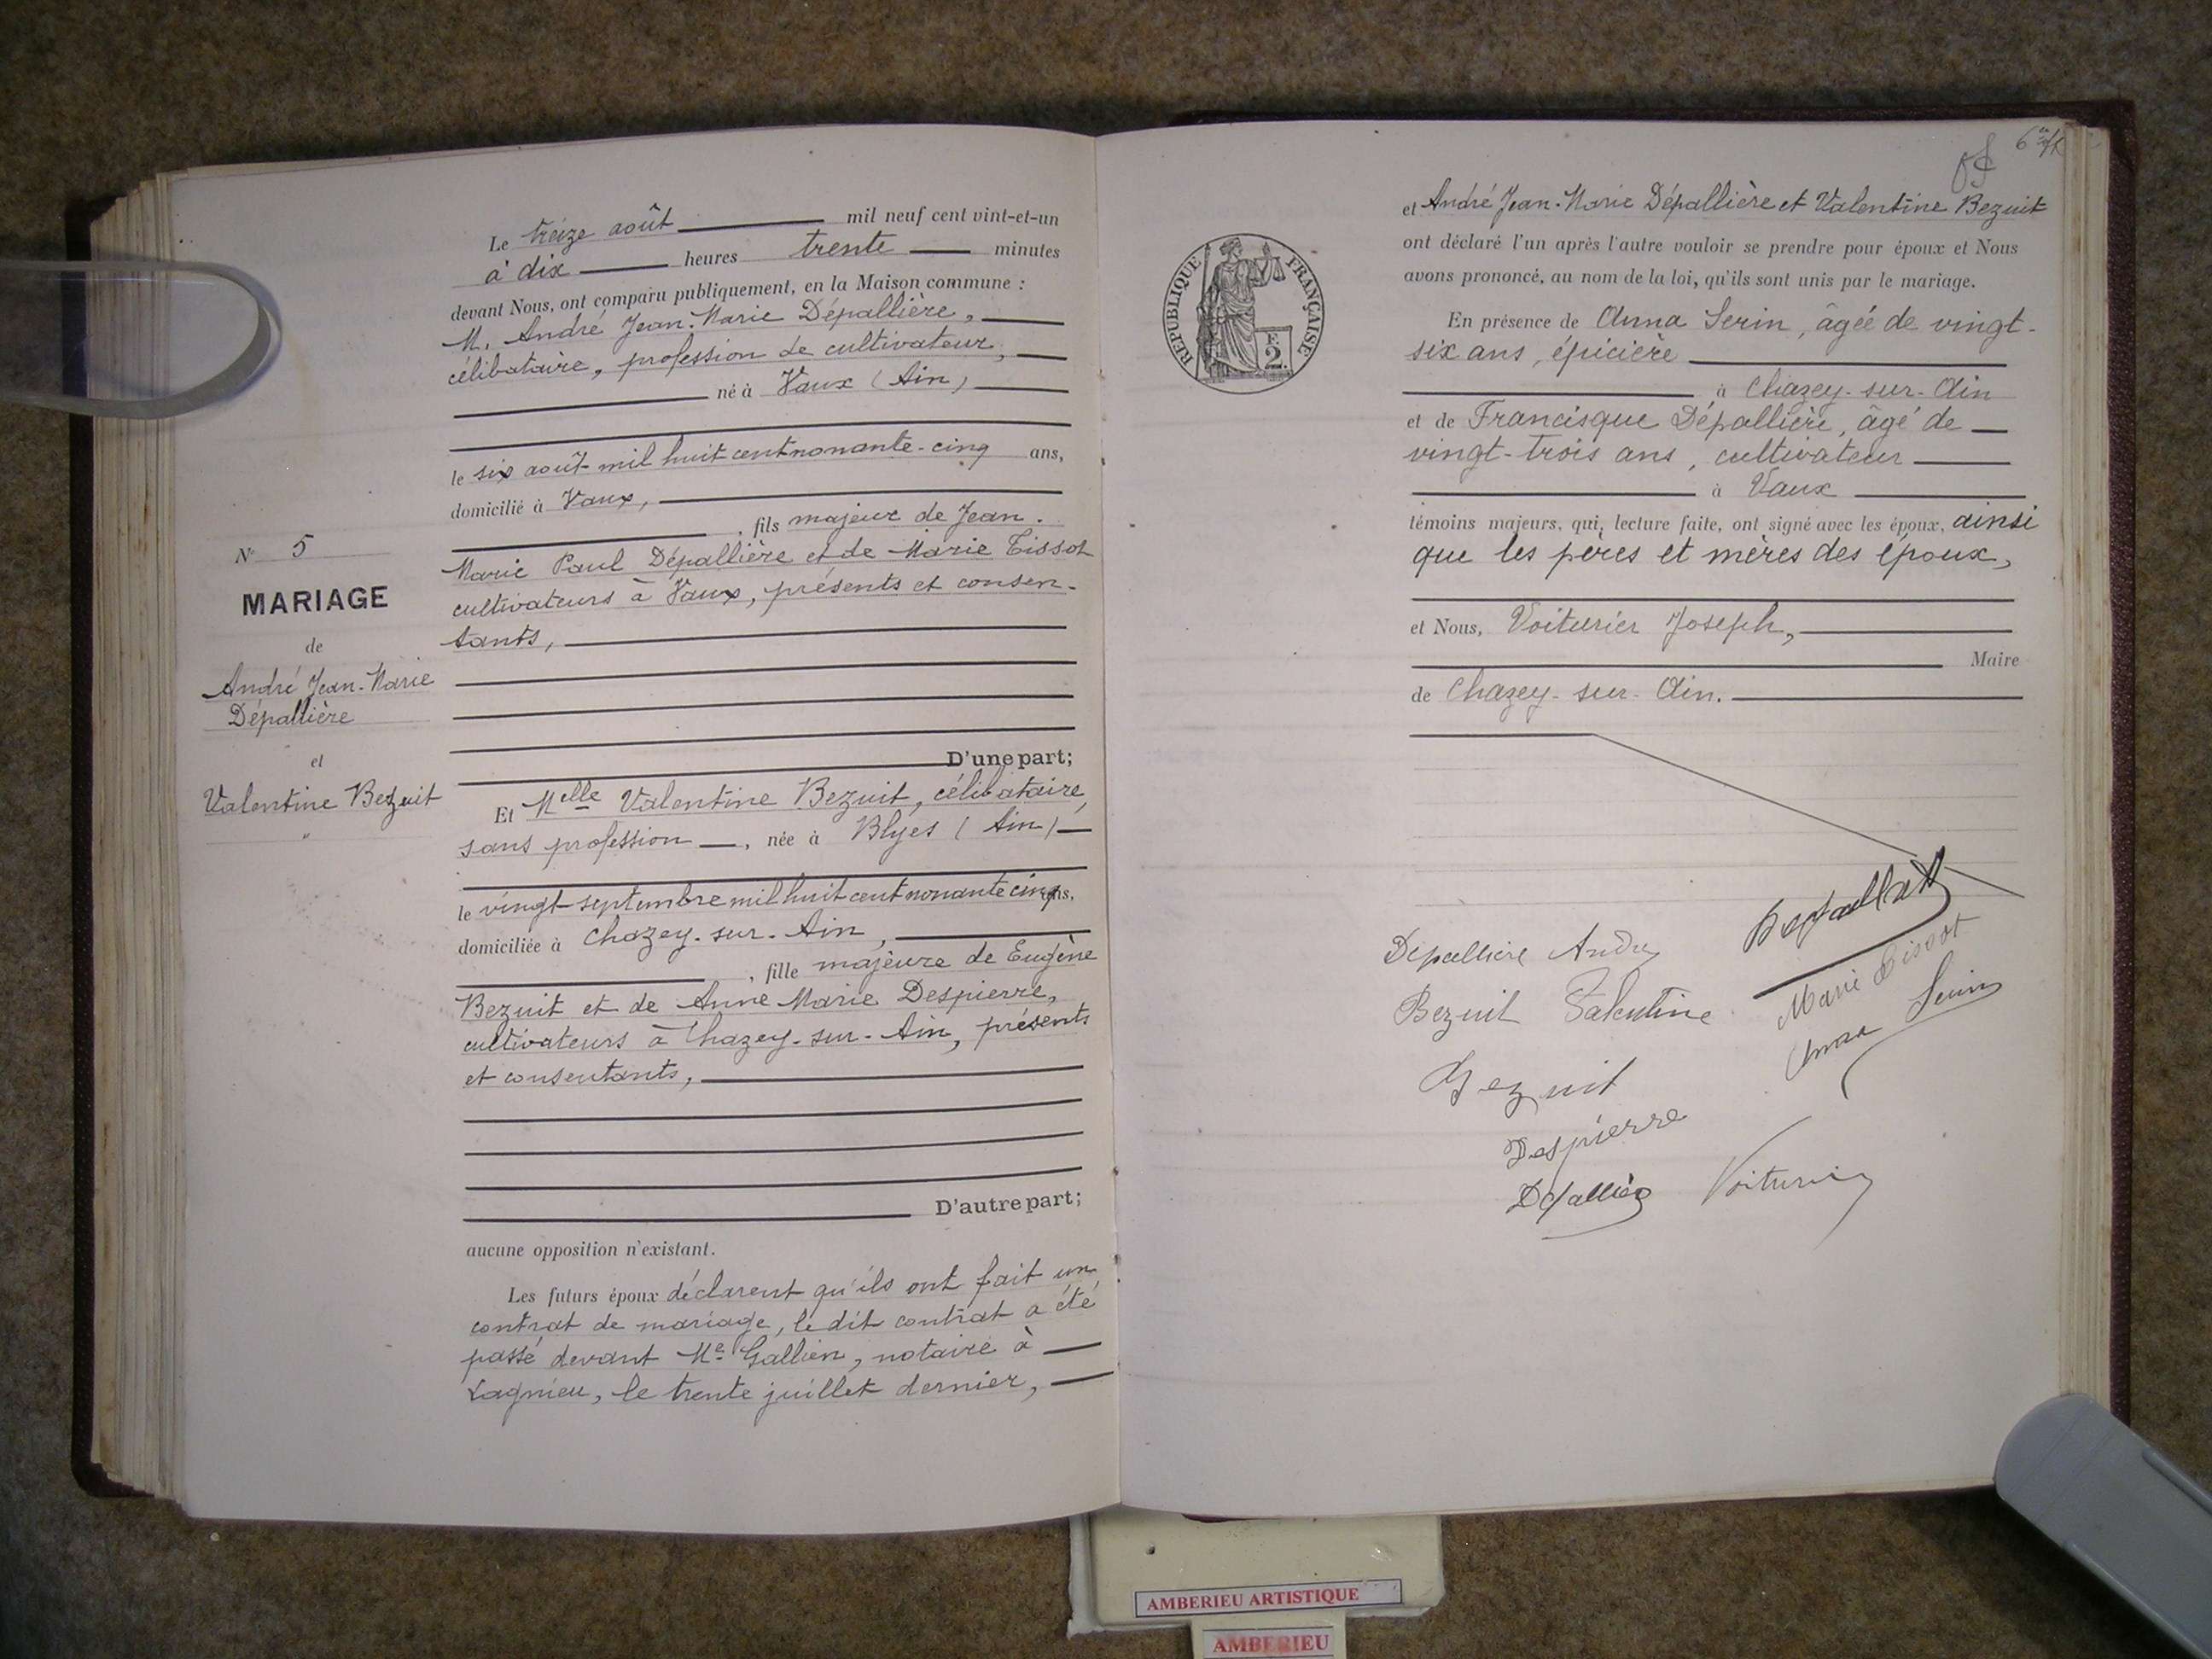 Le treize août mil neuf cent vint-et-un
à dix heures trente minutes
devant Nous, ont comparu publiquement, en la Maison commune :
M. André Jean-Marie Dépallière,
célibataire, profession de cultivateur,
né à Vaux (Ain)
le six août mil huit cent nonante-cinq ans,
domicilié à Vaux,
, fils majeur de Jean-
Marie Paul Dépallière et de Marie Tissot
cultivateurs à Vaux, présents et consen-
tants,
D'une part;
N° 5
MARIAGE
de
André Jean-Marie
Dépallière
et
Valentine Bezuit
"
Et Melle Valentine Bezuit, célibataire,
sans profession, née à Blyes (Ain)
le vingt septembre mil huit cent nonante cinq ans,
domiciliée à Chazey-sur-Ain,
, fille majeure de Eugène
Bezuit et de Anne Marie Despierre,
cultivateurs à Chazey-sur-Ain, présents
et consentants,
D'autre part;
aucune opposition n'existant.
Les futurs époux déclarent qu'ils ont fait un
contrat de mariage, le dit contrat a été
passé devant Me Gallien, notaire à
Lagnieu, le trente juillet dernier,
RÉPUBLIQUE FRANÇAISE
F.
2.
et André Jean-Marie Dépallière et Valentine Bezuit
ont déclaré l'un après l'autre vouloir se prendre pour époux et Nous
avons prononcé, au nom de la loi, qu'ils sont unis par le mariage.
En présence de Anna Serin, âgée de vingt-
six ans, épicière
à Chazey-sur-Ain
et de Francisque Dépallière, âgé de
vingt-trois ans, cultivateur
à Vaux
témoins majeurs, qui, lecture faite, ont signé avec les époux, ainsi
que les pères et mères des époux,
et Nous, Voiturier Joseph,
Maire
de Chazey-sur-Ain.
Depalliere André
Bezuit Valentine
Marie Tissot
Anna Serin
Bezuit
Despierre
Voiturier
AMBERIEU ARTISTIQUE
AMBERIEU